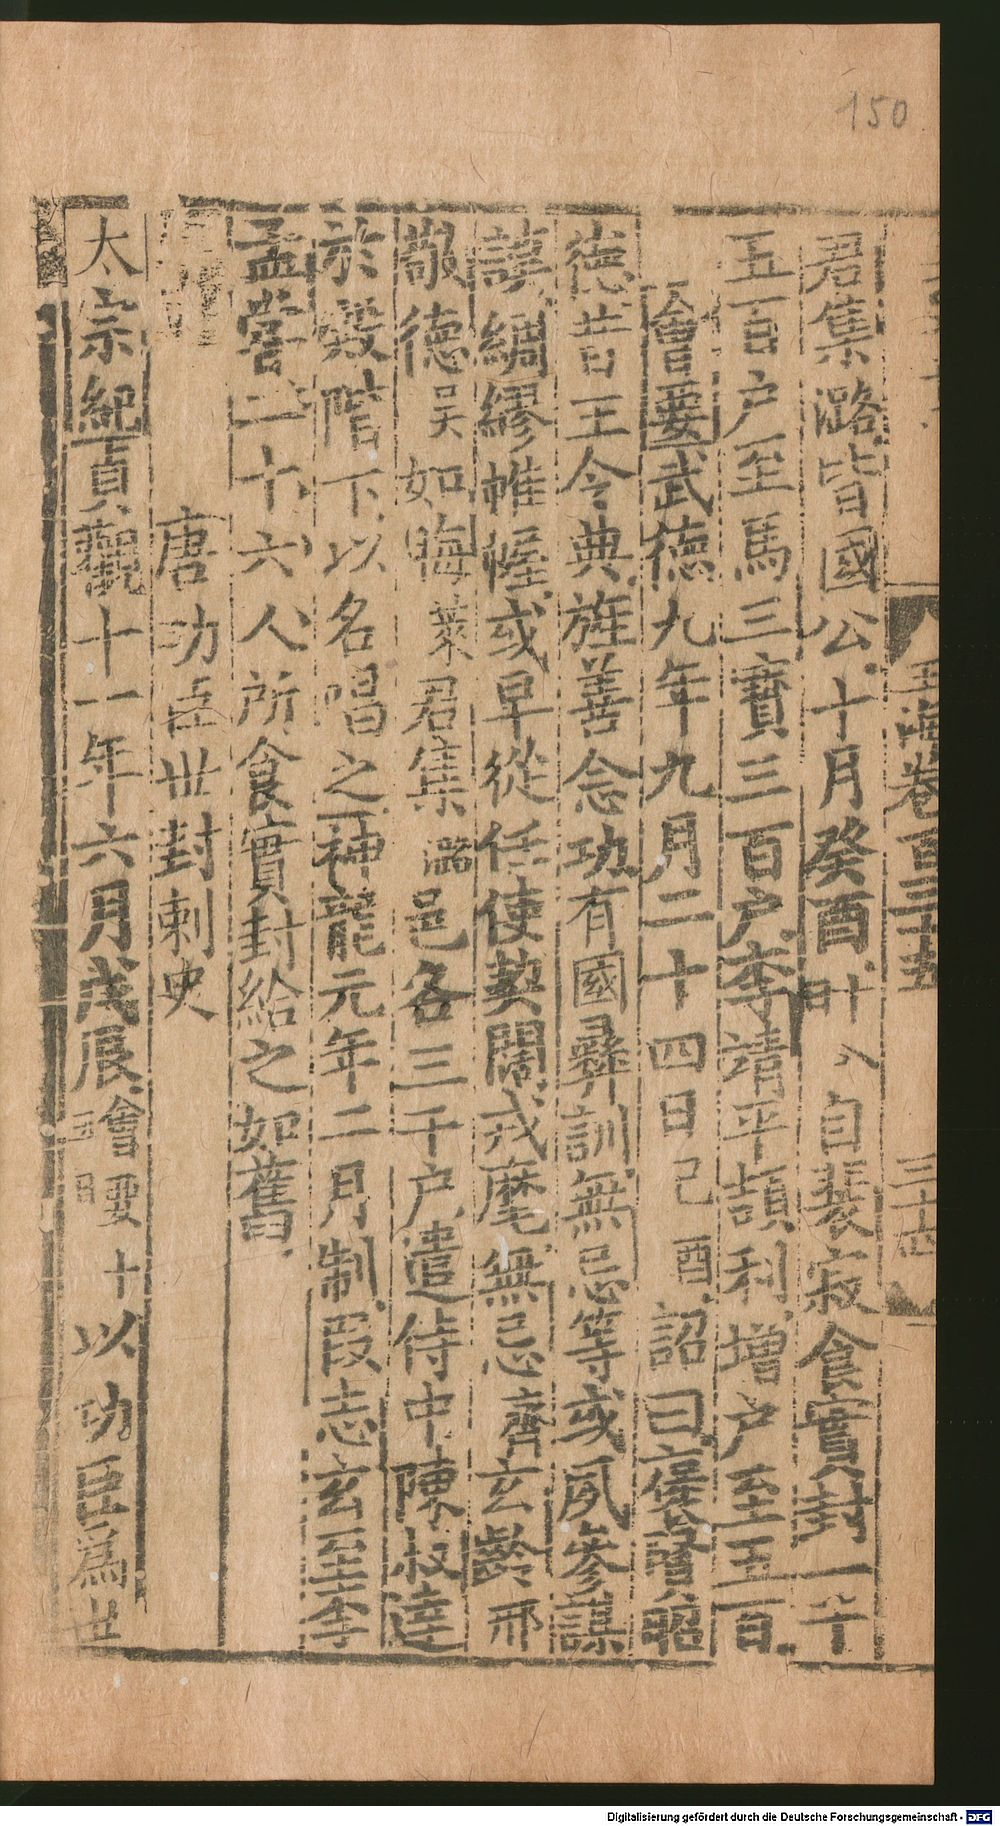 150
玉海卷百三十五
三十六
君集潞皆國公十月癸酉廿八自裴寂食實封一千
五百户至馬三寶三百户李靖平頡利增户至五百
會要武德九年九月二十四日己酉詔曰襃賢昭
德昔王令典旌善念功有國彝訓無忌等或夙參謀
謨綢繆帷幄或早從任使契闊戎麾無忌齊玄齡邢
敬德吳如晦萊君集潞邑各三千户遣侍中陳叔達
於殿階下以名唱之神龍元年二月制段志玄至李
孟嘗二十六人所食實封給之如舊
唐功臣世封刺史
太宗紀貞觀十一年六月戊辰會要十五日以功臣爲世
Digitalisierung gefördert durch die Deutsche Forschungsgemeinschaft - DFG